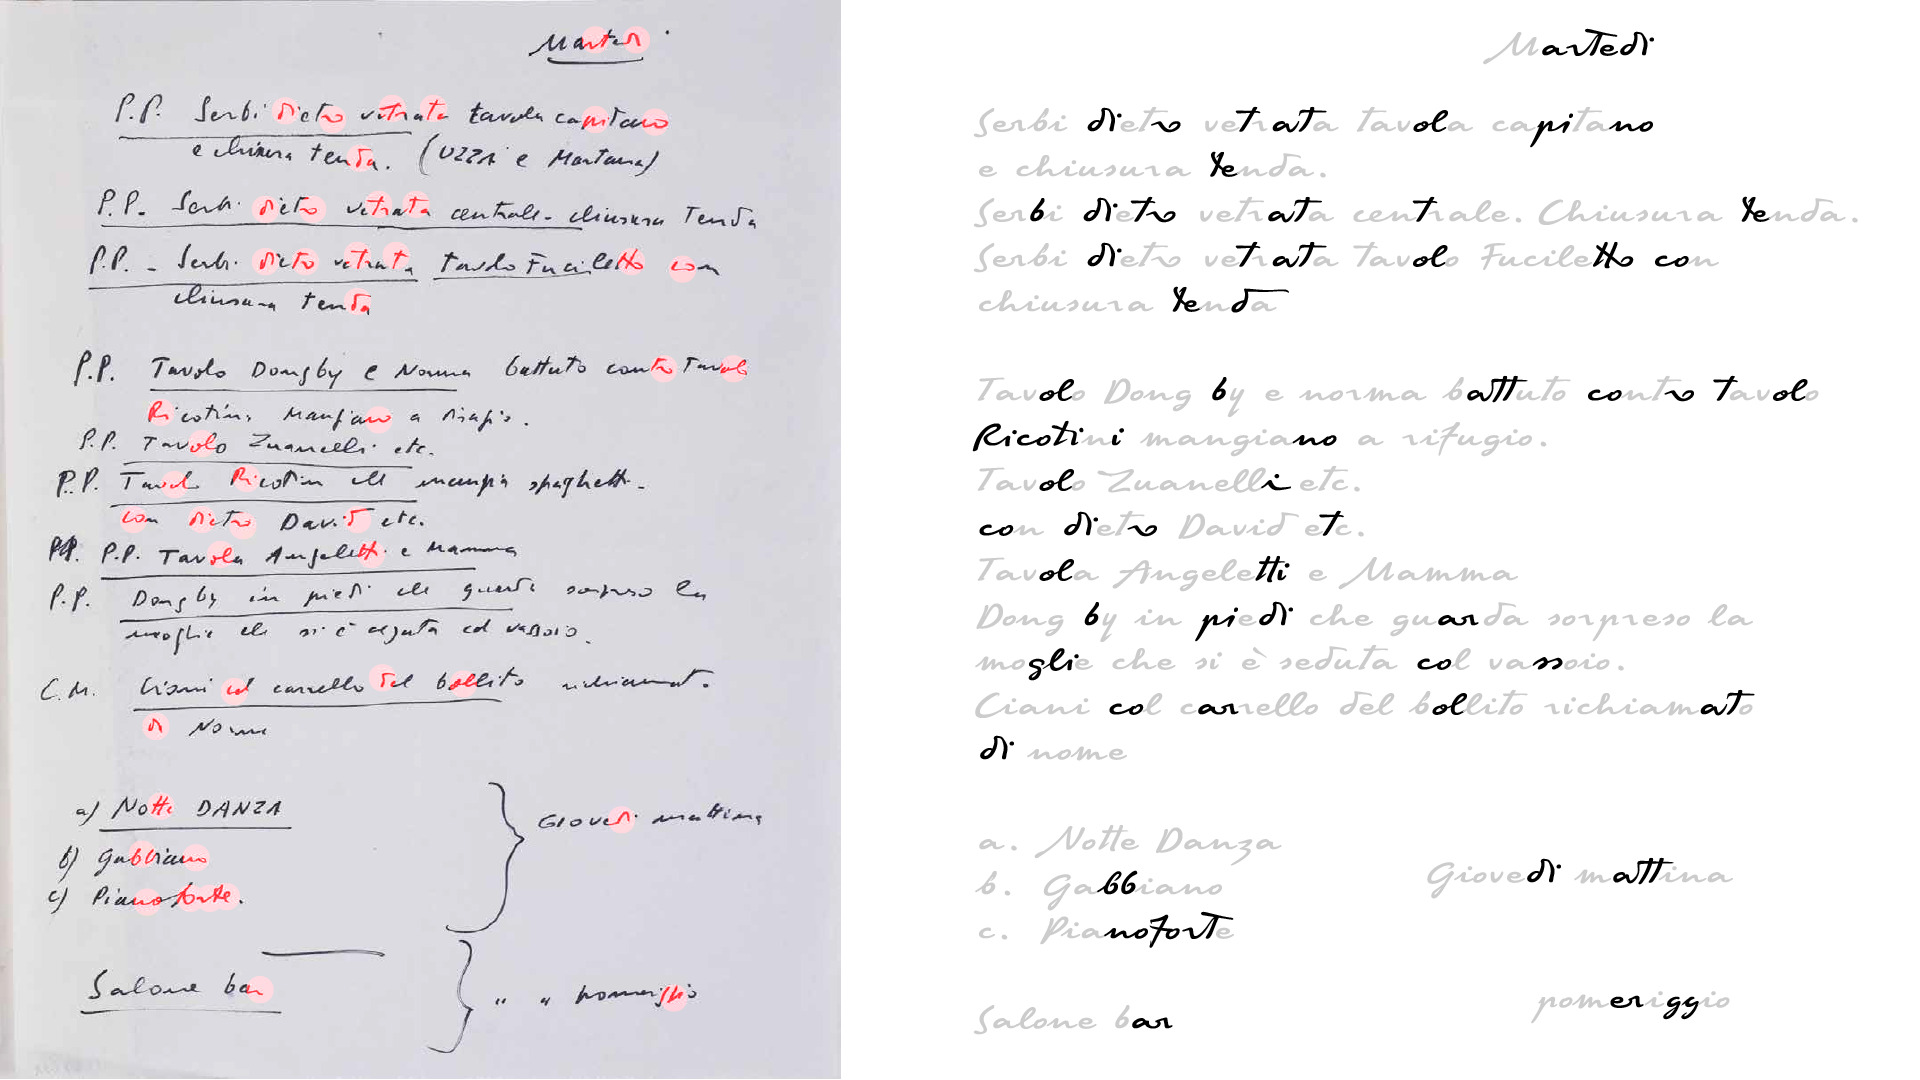 Martedì
P.P. Serbi dietro vetrata tavola capitano
e chiusura tenda. (UZZI e Montana)
P.P. - Serbi dietro vetrata centrale - chiusura Tenda
P.P. - Serbi dietro vetrata tavolo Fuciletto con
chiusura tenda
P.P. Tavolo Dongby e Norma battuto contro Tavolo
Ricotini mangiano a rifugio.
P.P. Tavolo Zuanelli etc.
P.P. Tavolo Ricotini che mangia spaghetti -
con dietro David etc.
P.P. P.P. Tavola Angeletti e Mamma
P.P. Dongby in piedi che guarda sorpreso la
moglie che si è seduta col vassoio.
C.M. Ciani col carrello del bollito richiamato
di Nome
a) Notte DANZA
b) Gabbiano
c) Pianoforte.
Giovedi mattina
Salone bar
" " pomeriggio
Martedì
Serbi dietro vetrata tavola capitano
e chiusura tenda.
Serbi dietro vetrata centrale. Chiusura tenda.
Serbi dietro vetrata tavolo Fuciletto con
chiusura tenda
Tavolo Dong by e norma battuto contro tavolo
Ricotini mangiano a rifugio.
Tavolo Zuanelli etc.
con dietro David etc.
Tavola Angeletti e Mamma
Dong by in piedi che guarda sorpreso la
moglie che si è seduta col vassoio.
Ciani col carrello del bollito richiamato
di nome
a. Notte Danza
b. Gabbiano
c. Pianoforte
Giovedì mattina
Salone bar
pomeriggio